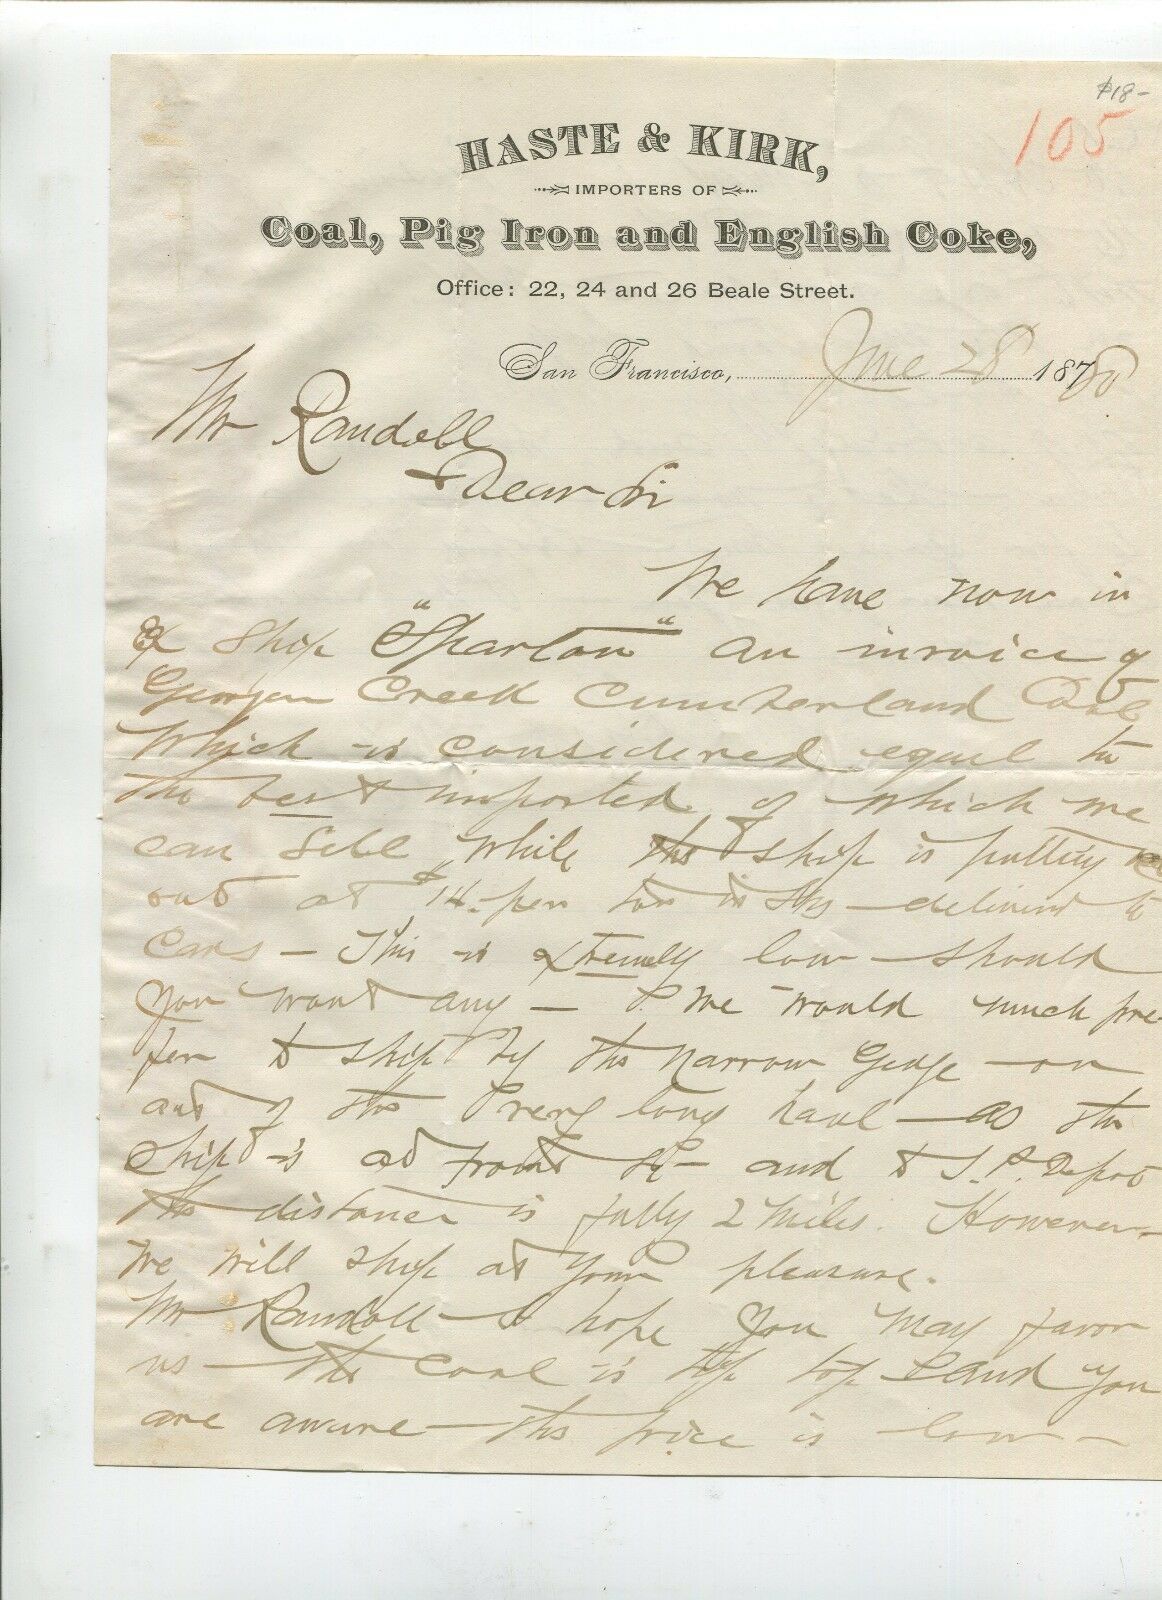 $18-
105
HASTE & KIRK,
IMPORTERS OF
Coal, Pig Iron and English Coke,
Office: 22, 24 and 26 Beale Street.
San Francisco, June 28 1880
Mr Randall
Dear Sir
We have now in
Ex Ship "Spartan" an invoice of
Georges Creek Cumberland Coal
Which is considered equal to
the best imported of which we
can Sell while the ship is putting
out at $14- per ton in Sks - delivered to
Cars - This is extremely low should
You want any - We would much pre-
fer to ship by the narrow Gauge - on
act of the very long haul - as the
Ship is at front St - and to S.P. Depot
the distance is fully 2 miles. However -
we will ship at your pleasure.
Mr Randall - I hope You may favor
us - the coal is tip top and You
are aware - the price is low -